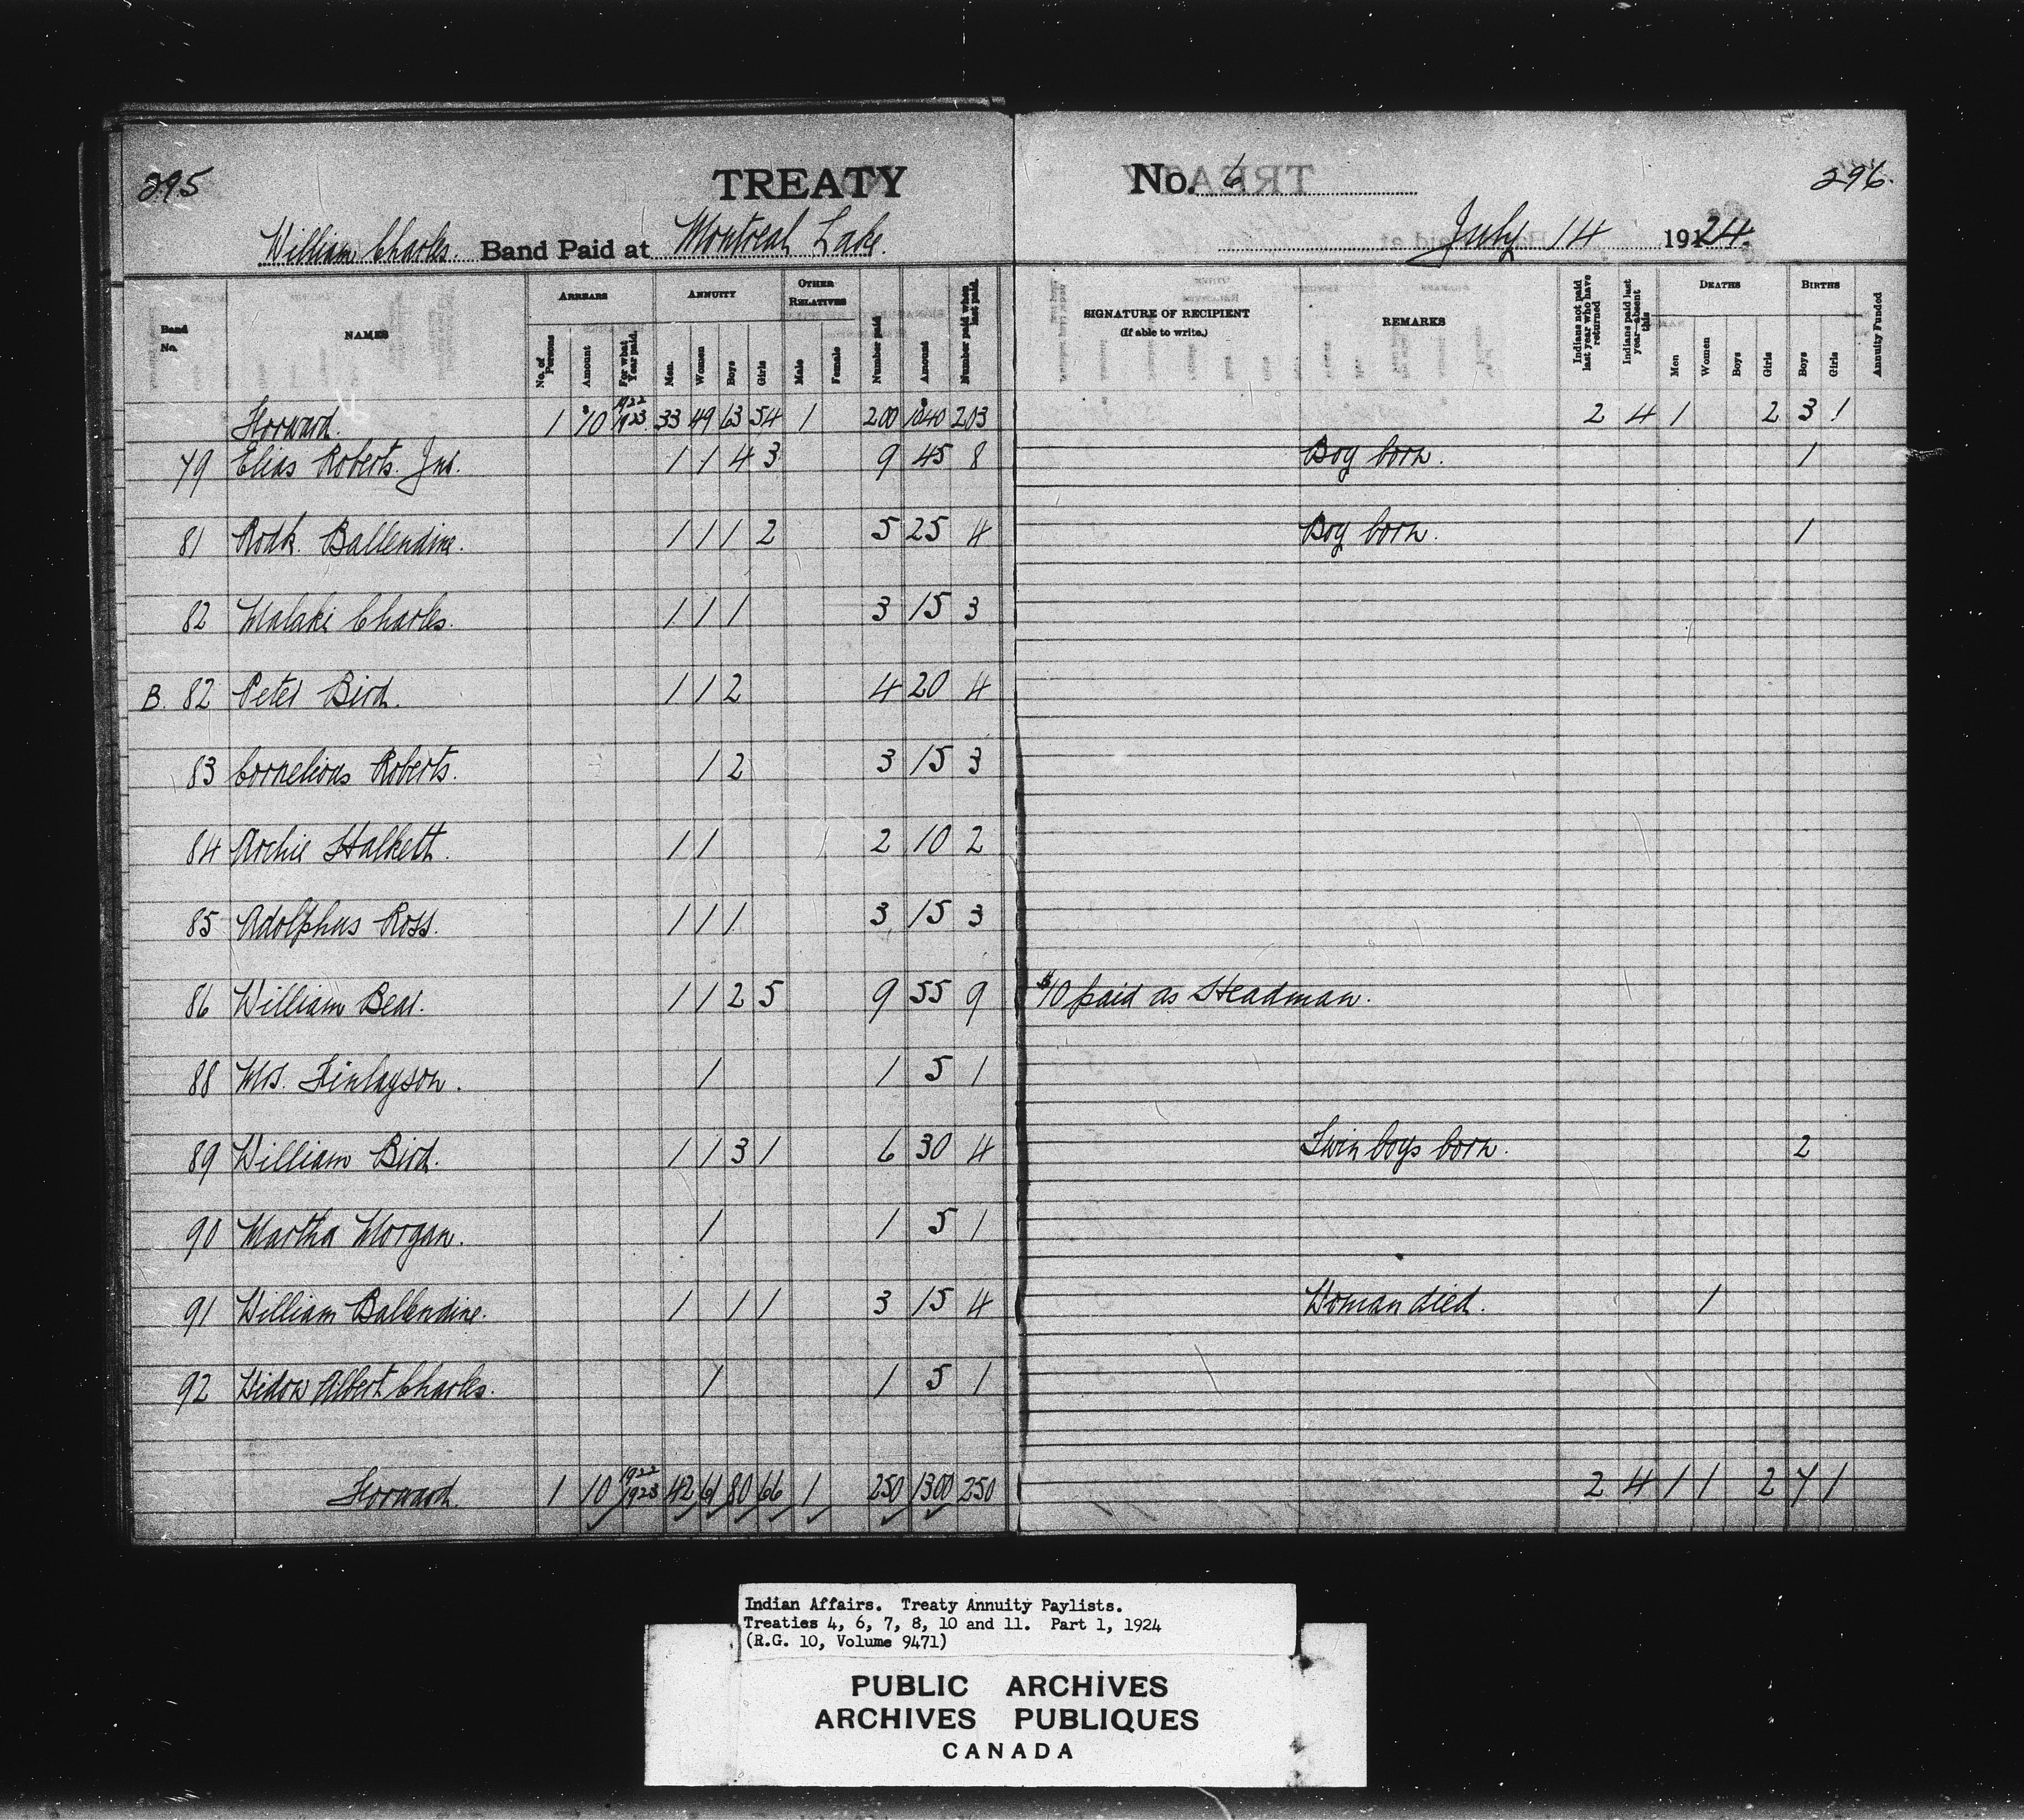 295 TREATY No. 6 296.
William Charles. Band Paid at Montreal Lake. July 14 1924.
Band No. NAMES ARREARS No. of Persons Amount For what Year paid. ANNUITY Men. Women Boys Girls OTHER RELATIVES Male Female Number paid Amount Number paid when last paid. SIGNATURE OF RECIPIENT (If able to write.) REMARKS Indians not paid last year who have returned Indians paid last year—absent this DEATHS Men Women Boys Girls BIRTHS Boys Girls Annuity Funded
Forward. 1 $10 1922 1923 33 49 63 54 1 200 $1040 203 2 4 1 2 3 1
79 Elias Roberts. Jnr. 1 1 4 3 9 45 8 Boy born. 1
81 Rodk. Ballendine. 1 1 1 2 5 25 4 Boy born. 1
82 Malaki Charles. 1 1 1 3 15 3
B. 82 Peter Bird. 1 1 2 4 20 4
83 Cornelious Roberts. 1 2 3 15 3
84 Archie Halkett. 1 1 2 10 2
85 Adolphus Ross. 1 1 1 3 15 3
86 William Bear. 1 1 2 5 9 55 9 $10 paid as Headman.
88 Mrs. Finlayson. 1 1 5 1
89 William Bird. 1 1 3 1 6 30 4 Twin boys born. 2
90 Martha Morgan. 1 1 5 1
91 William Ballendine. 1 1 1 3 15 4 Woman died. 1
92 Widow Albert Charles. 1 1 5 1
Forward 1 10 1922 1923 42 61 80 66 1 250 1300 250 2 4 1 1 2 7 1
Indian Affairs. Treaty Annuity Paylists.
Treaties 4, 6, 7, 8, 10 and 11. Part 1, 1924
(R.G. 10, Volume 9471)
PUBLIC ARCHIVES
ARCHIVES PUBLIQUES
CANADA